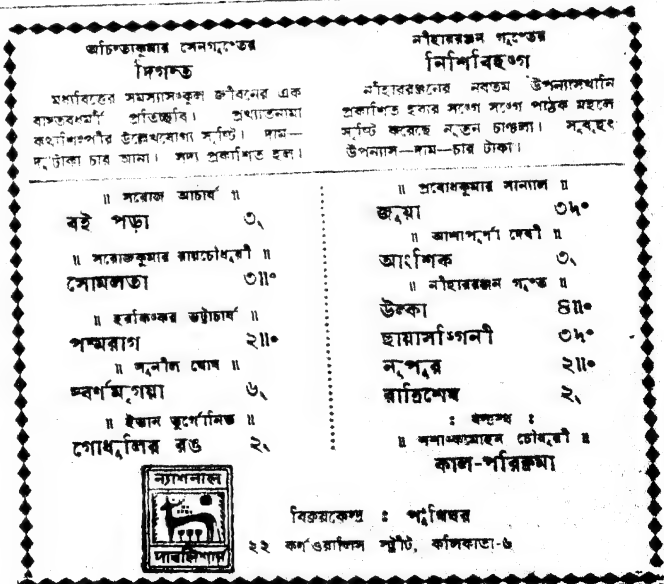 অচিন্ত্যকুমার সেনগুপ্তের
দিগন্ত
মধ্যবিত্তের সমস্যাসংকুল জীবনের এক
বাস্তবধর্মী প্রতিচ্ছবি। প্রখ্যাতনামা
কথাশিল্পীর উল্লেখযোগ্য সৃষ্টি। দাম—
দু টাকা চার আনা। সদ্য প্রকাশিত হল।
নীহাররঞ্জন গুপ্তের
নিশিবিহঙ্গ
নীহাররঞ্জনের নবতম উপন্যাসখানি
প্রকাশিত হবার সঙ্গে সঙ্গে পাঠক মহলে
সৃষ্টি করেছে নূতন চাঞ্চল্য। সুবৃহৎ
উপন্যাস—দাম—চার টাকা।
॥ সরোজ আচার্য ॥
বই পড়া ৩৲
॥ সরোজকুমার রায়চৌধুরী ॥
সোমলতা ৩॥৹
॥ হরকিঙ্কর ভট্টাচার্য ॥
পদ্মরাগ ২॥৹
॥ সুনীল ঘোষ ॥
স্বর্ণমৃগয়া ৬৲
॥ ইভান তুর্গেনিভ ॥
গোধূলির রঙ ২৲
॥ প্রবোধকুমার সান্যাল ॥
জয়া ৩৸৹
॥ আশাপূর্ণা দেবী ॥
আংশিক ৩৲
॥ নীহাররঞ্জন গুপ্ত ॥
উল্কা ৪॥৹
ছায়াসঙ্গিনী ৩৸৹
নূপুর ২॥৹
রাত্রিশেষ ২৲
: যন্ত্রস্থ :
॥ শশাঙ্কমোহন চৌধুরী ॥
কাল-পরিক্রমা
ন্যাশনাল
পাবলিশার্স
বিক্রয়কেন্দ্র : পুঁথিঘর
২২ কর্নওয়ালিস স্ট্রীট, কলিকাতা-৬